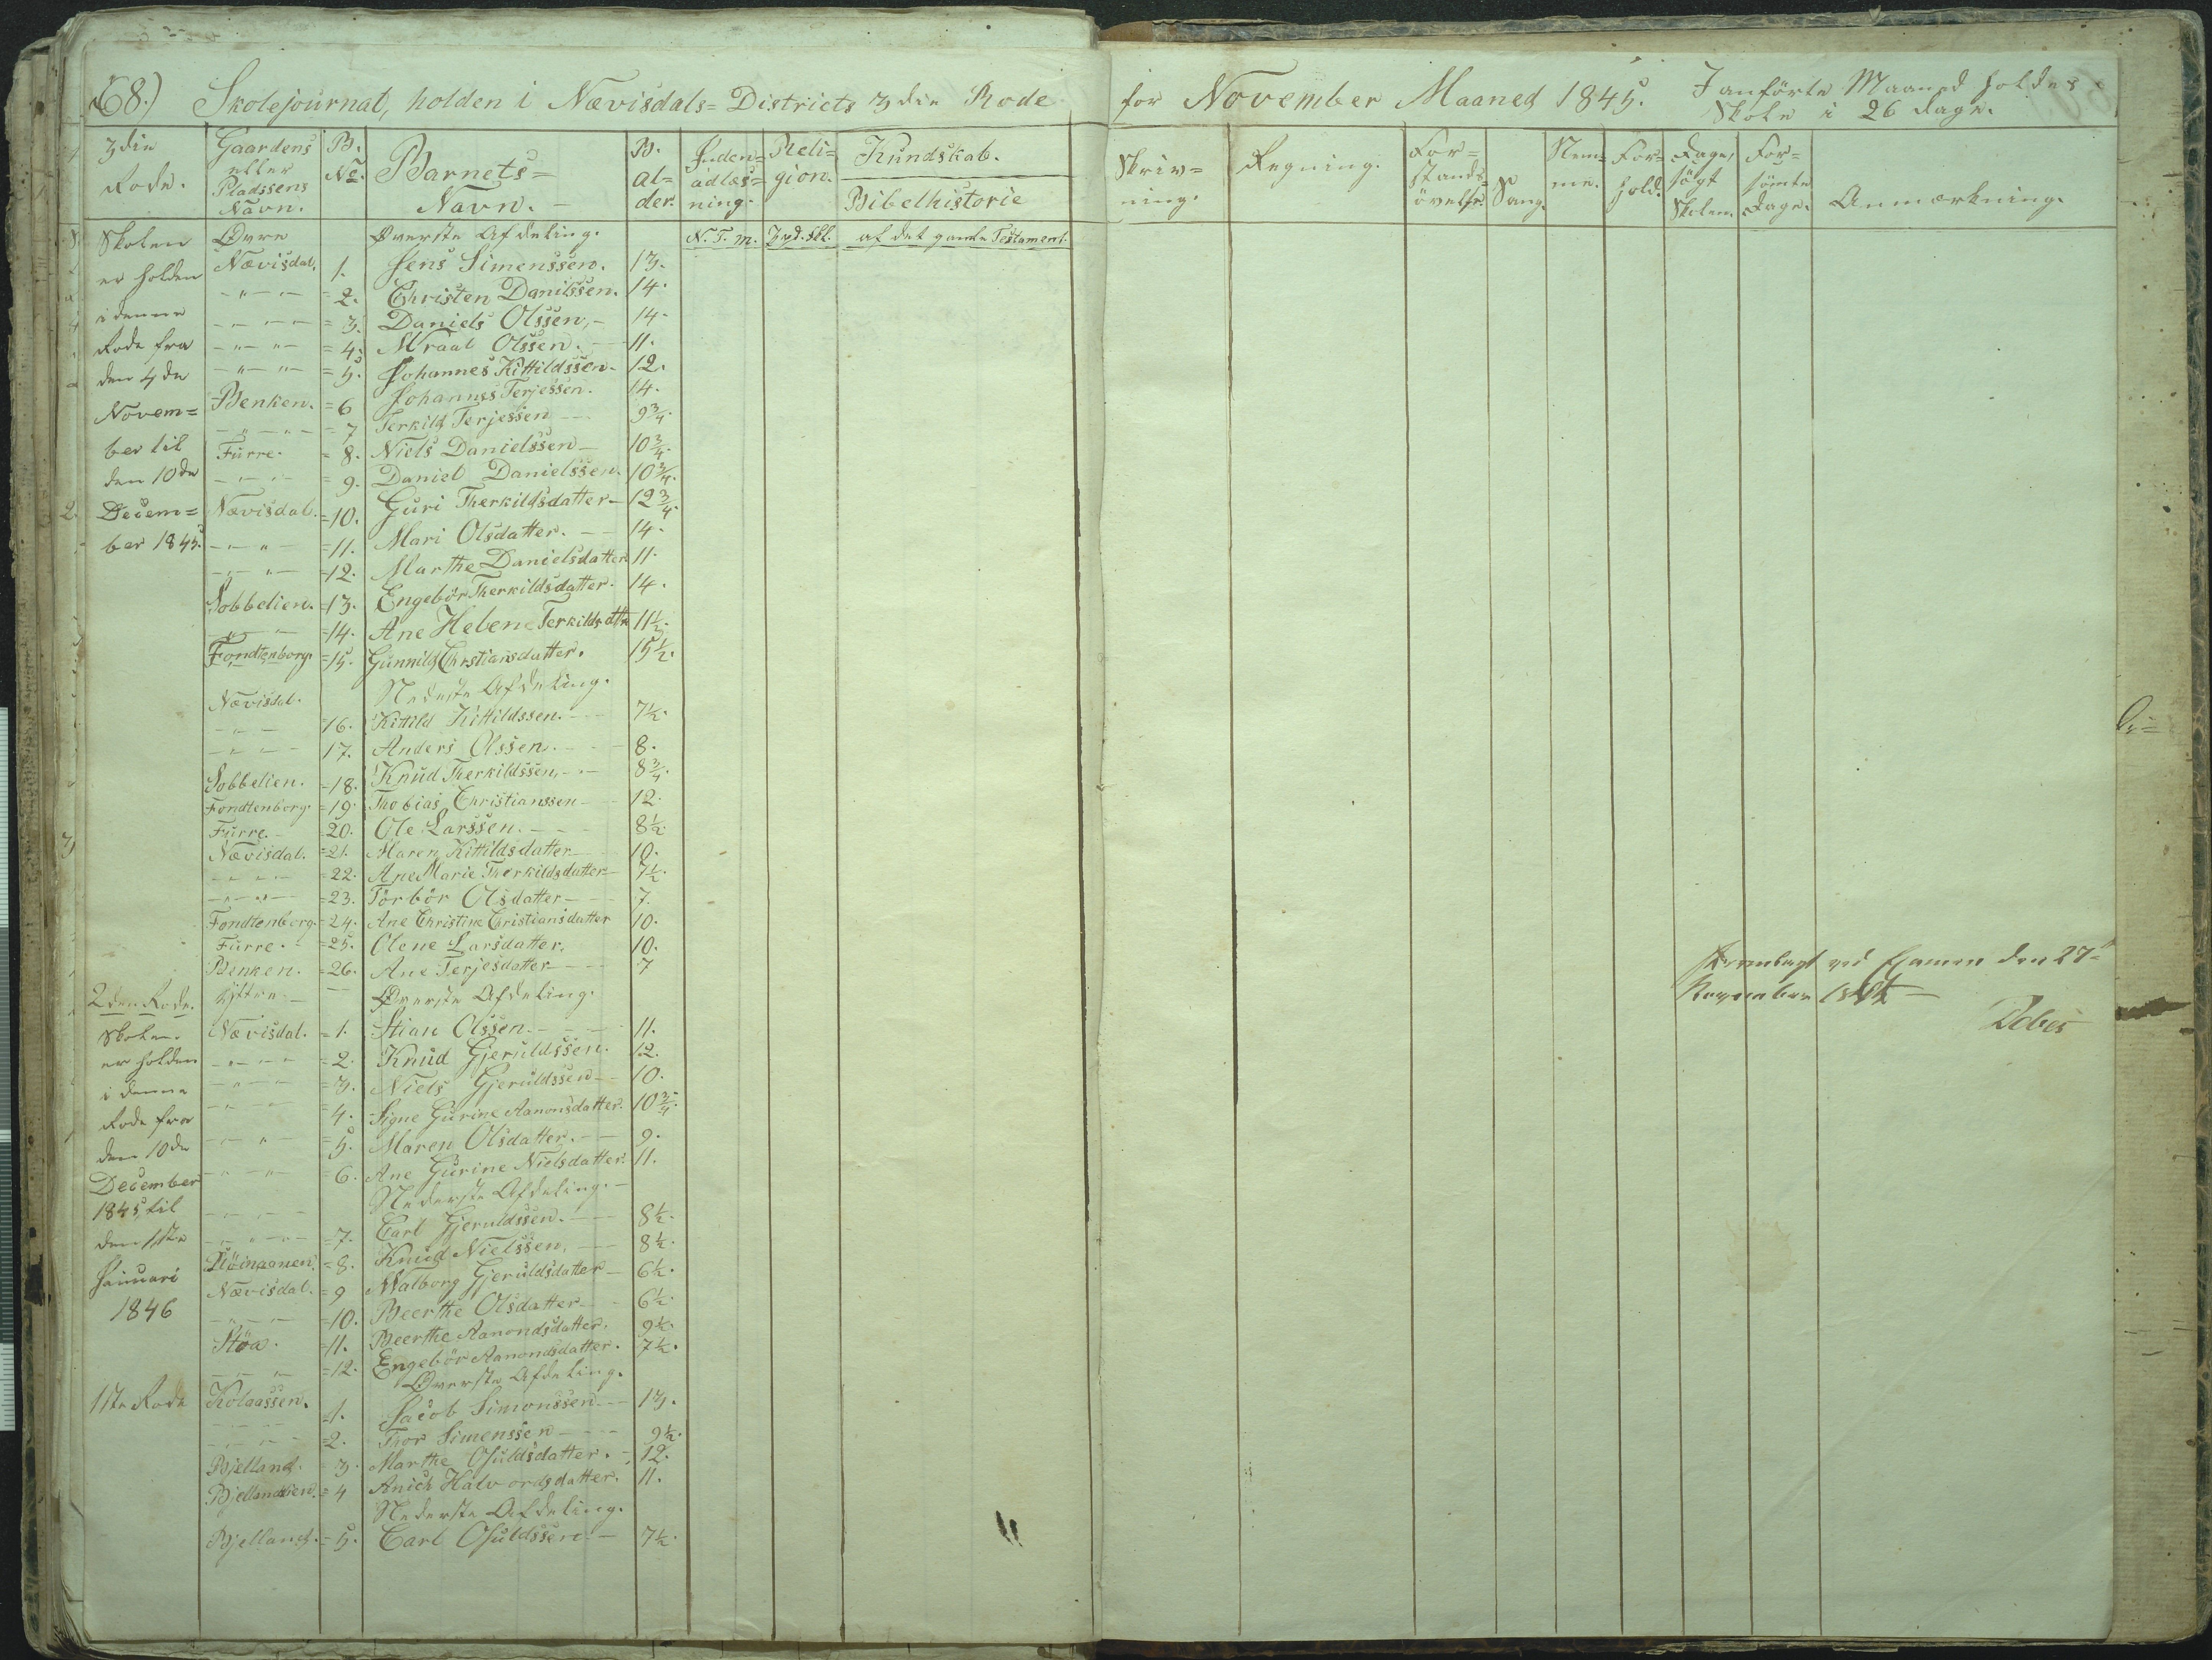 68.) Skolejournal, holden i Nævisdals= Districts 3die Rode for November Maaned 1845. I anførte Maaned holdes
Skole i 26 Dage.
3die Rode. Gaardens eller Pladssens Navn. B. No. Barnets= Navn. B. al= der. Inden= adlæs= ning. Reli= gion. Kundskab. Bibelhistorie Skriv= ning. Regning. For= stands= øvelse. Sang. Nem= me. For= hold. Dage, søgt Skolen. For= sømte Dage. Anmærkning.
Skolen Øvre Øverste Afdeling. N. T. m. af det gamle Testament.
er holden Nævisdal. 1. Jens Simenssen. 13.
-"- =2. Christen Danilssen. 14.
i denne -"- =3. Daniels Olssen,- 14.
Rode fra -"- =4. Wraal Olssen. 11.
den 4de -"- =5. Johannes Kittildssen. 12.
Novem= Benken. =6 Johannes Terjessen. 14.
-"- =7 Terkild Terjessen 9 3/4.
ber til Furre. =8. Niels Danielssen- 10 3/4.
den 10de -"- =9. Daniel Danielssen. 10 3/4.
Decem= Nævisdal. =10. Guri Therkildsdatter- 12 3/4.
ber 1845. -"- =11. Mari Olsdatter. 14.
-"- =12. Marthe Danielsdatter 11.
Sobbelien. =13. Engebör Therkildsdatter. 14.
-"- =14. Ane Helene Terkildsdttr 11 1/2.
Fondtenborg. =15. Gunnild Chrstiansdatter. 15 1/2.
Nævisdal. Nederste Afdeling.
-"- =16. Kittild Kittildssen. 7 1/2.
-"- 17. Anders Olssen. 8.
Sobbelien. =18. Knud Therkildssen, 8 3/4.
Fondtenberg. =19. Thobias Christianssen 12.
Furre. =20. Ole Larssen. 8 1/2.
Nævisdal. =21. Maren Kittildsdatter 10.
-"- =22. Ane Marie Therkildsdatter 7 1/2.
-"- =23. Törbör Olsdatter 7.
Fondtenberg. =24. Ane Christine Christiansdatter 10.
Furre. =25. Olene Larsdatter. 10.
Benken. =26. Ane Terjesdatter 7
2den Rode. Yttre Øverste Afdeling.
Skolen Nævisdal. =1. Stian Olssen. 11.
er holden -"- =2. Knud Gjeruldssen. 12.
i denne -"- =3. Niels Gjeruldssen 10.
Rode fra -"- =4. Signe Gurine Aanonsdatter. 10 3/4.
den 10de -"- =5. Maren Olsdatter. 9.
December -"- =6. Ane Gurine Nielsdatter. 11.
1845 til -"- Nederste Afdeling.
den -"- =7. Carl Gjeruldssen. 8 1/2.
Januari =8. Knud Nielssen, 8 1/2.
1846 Nævisdal. =9 Walborg Gjeruldsdatter 6 1/2.
-"- =10. Beerthe Olsdatter 6 1/2.
Stöa. =11. Beerthe Aanondsdatter. 9 1/2.
-"- =12. Engebör Aanondsdatter. 7 1/2.
Øverste Afdeling.
1ste Rode Kolaassen. =1. Jacob Simonssen 13.
-"- =2. Thor Simenssen 9 1/2.
Bjelland. 3. Marthe Osuldsdatter. 12.
Bjellandlien. =4 Anich Halvordsdatter. 11.
Nederste Afdeling.
Bjelland. =5. Carl Osuldssen 7 1/2.
Fremlagt ved Examen den 27
November